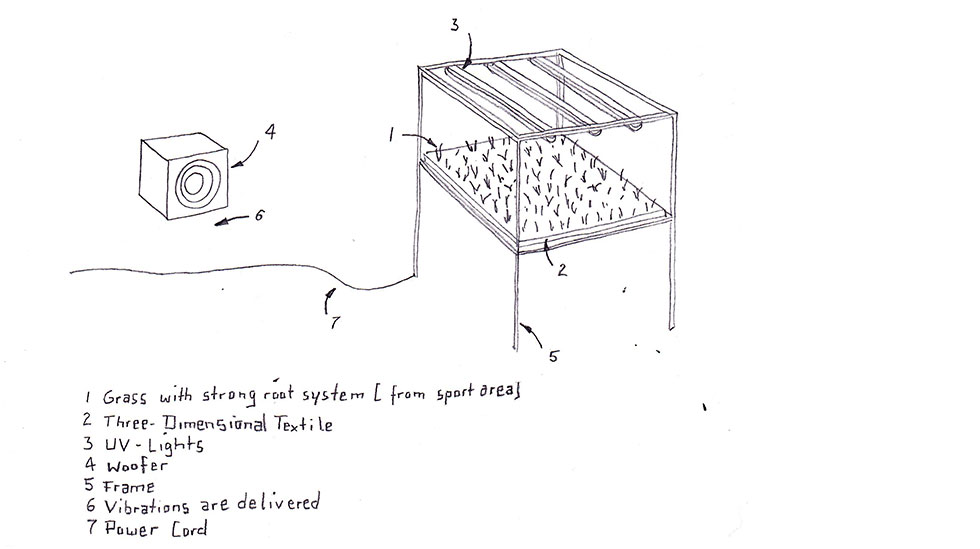 3
1
4
6
2
7
5
1 Grass with strong root system [ from sport area]
2 Three-Dimensional Textile
3 UV-Lights
4 Woofer
5 Frame
6 Vibrations are delivered
7 Power Cord